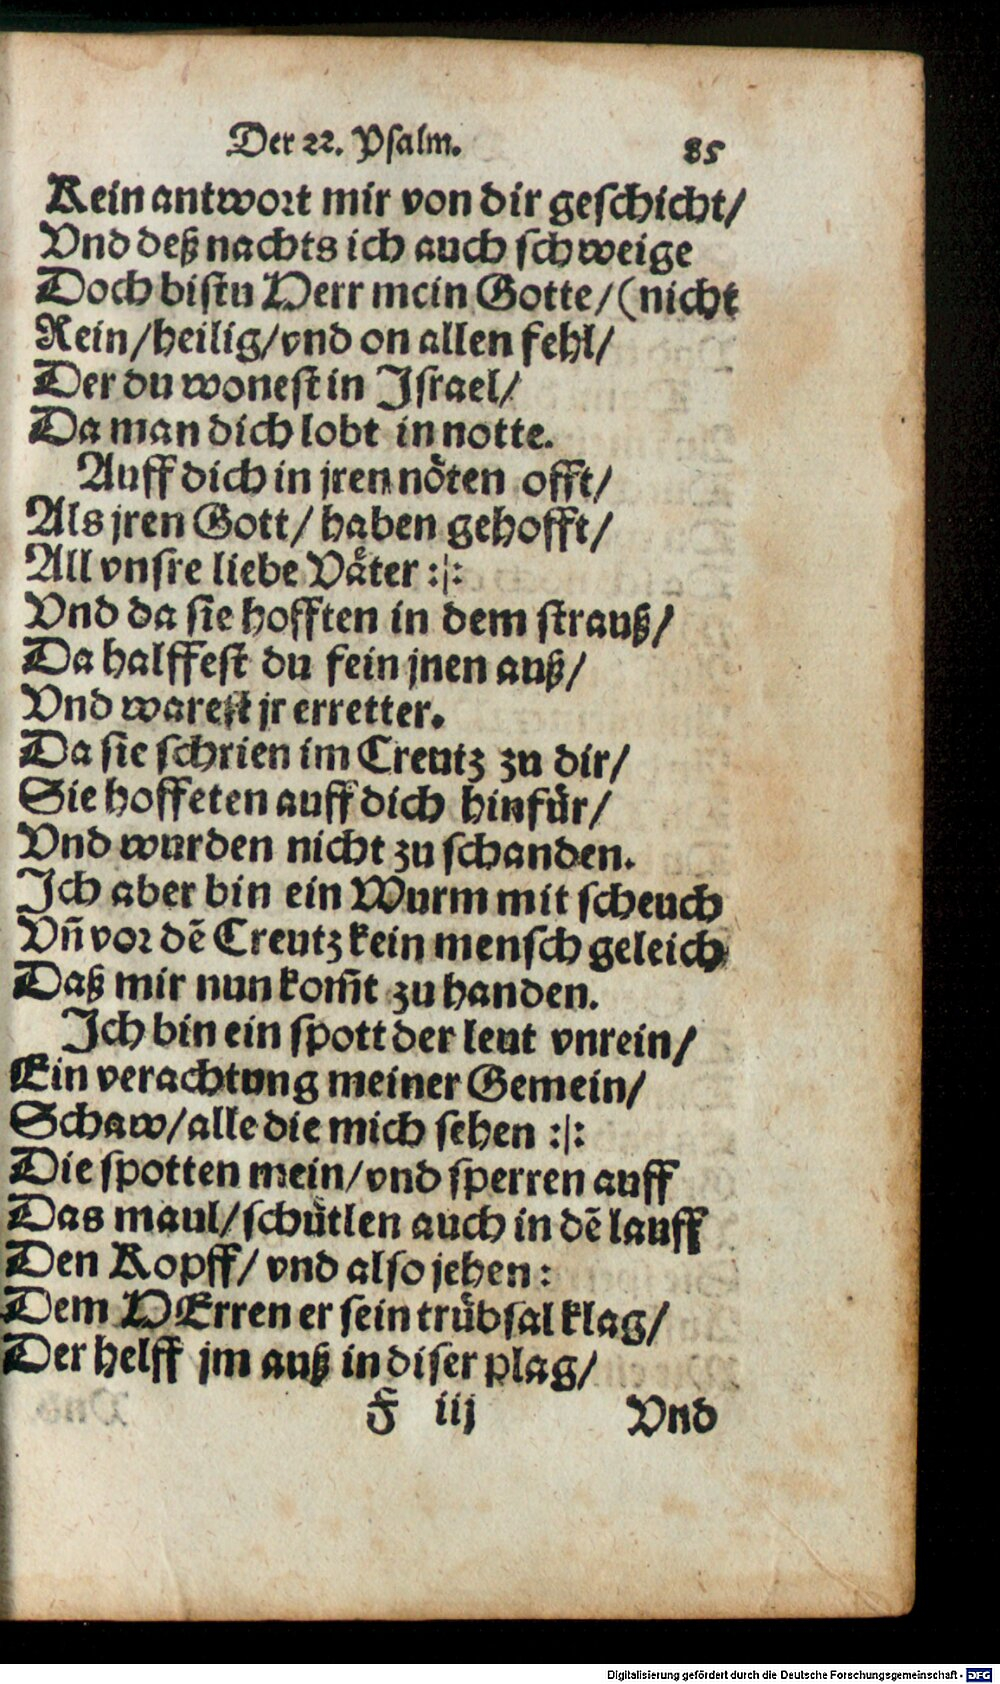 Der 22. Psalm. 85
Kein antwort mir von dir geschicht/
Vnd deß nachts ich auch schweige
Doch bistu Herr mein Gotte/(nicht
Rein/heilig/vnd on allen fehl/
Der du wonest in Israel/
Da man dich lobt in notte.
Auff dich in jren nöten offt/
Als jren Gott/ haben gehofft/
All vnsre liebe Väter :|:
Vnd da sie hofften in dem strauß/
Da halffest du fein jnen auß/
Vnd warest jr erretter.
Da sie schrien im Creutz zu dir/
Sie hoffeten auff dich hinfür/
Vnd wurden nicht zu schanden.
Ich aber bin ein Wurm mit scheuch
Vñ vor dē Creutz kein mensch geleich
Daß mir nun kom̄t zu handen.
Ich bin ein spott der leut vnrein/
Ein verachtung meiner Gemein/
Schaw/alle die mich sehen :|:
Die spotten mein/vnd sperren auff
Das maul/schütlen auch in dē lauff
Den Kopff/ vnd also jehen:
Dem HErren er sein trübsal klag/
Der helff jm auß in diser plag/
F iij Vnd
Digitalisierung gefördert durch die Deutsche Forschungsgemeinschaft - DFG